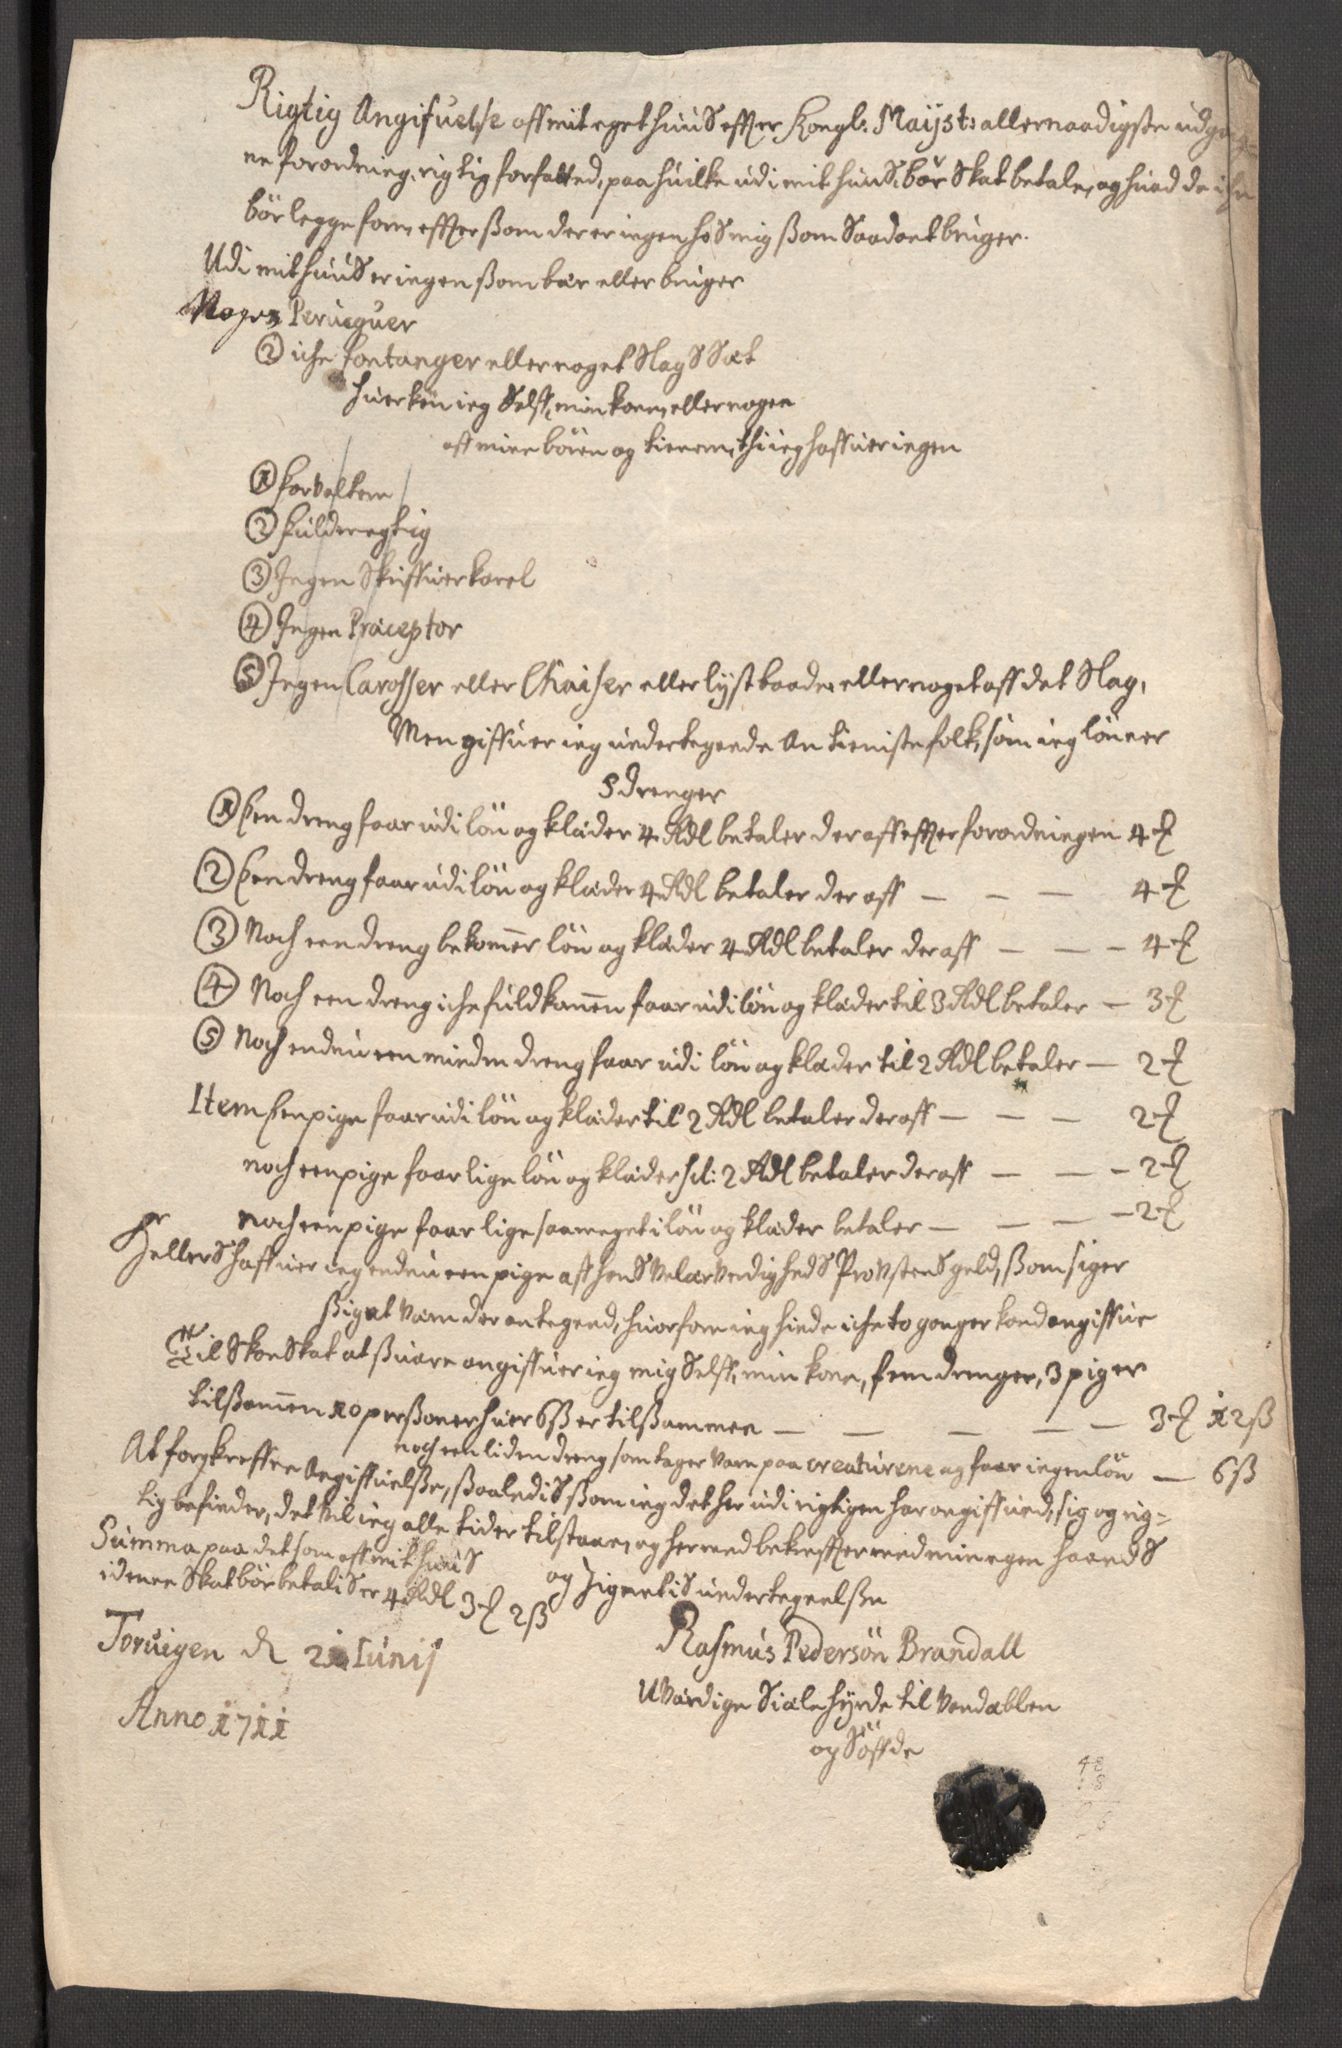 Rigtig Angifuelse aff mit eget huus effter Kongl: Mayst: allernaadigste udgang
ne forordning, rigtig forfatted, paa huilke udi mit huus bør Skat betale, og huad de iche
bør legge for, effter ßom der er ingen hos mig ßom Saadant bruger.
Udi mit huus er ingen ßom bær eller bruger
Nogen Perucquer
② iche fontanger eller noget Slags Sæt
huerken ieg Selff, min kone, eller nogen
aff mine børn og tienere, thi ieg haffuer ingen
① forvaltere
② fuldmegtig
③ Ingen Skriffuer karel
④ Ingen Præceptor
⑤ Ingen Carosser eller Chaiser eller lyst baade, eller noget aff det Slag,
Men giffuer ieg undertegnede An tieniste folk, som ieg lønner
5 drenger
① Een dreng faar udi løn og klæder 4 Rdl betaler der aff effter forordningen 4 ℔
② Een dreng faar udi løn og klæder 4 Rdl betaler der aff — — — 4 ℔
③ Noch een dreng bekommer løn og klæder 4 Rdl betaler der aff — — – 4 ℔
④ Noch een dreng iche fuldkommen faar udi løn og klæder til 3 Rdl betaler — 3 ℔
⑤ Noch endnu een minder dreng faar udi løn og klæder til 2 Rdl betaler — 2 ℔
Item Een pige faar udi løn og klæder til 2 Rdl betaler der aff — — — 2 ℔
noch een pige faar lige løn og klæder sc: 2 Rdl betaler der aff — — – 2 ℔
noch een pige faar lige saa meget i løn og klæder betaler — — — – 2 ℔
Hellers haffuer ieg endnu een pige aff hens velærverdigheds Provstens gield, ßom siger
ßig at være der antegned, huorfore ieg hinde iche to ganger kand angiffue
Til Skoe Skat at ßuare angiffuer ieg mig Selff, min kone, fem drenger, 3 piger
tilßammen 10 perßoner huer 6 ß er tilßammen — — — — — 3 ℔ 12 ß
noch een liden dreng som tager vare paa creaturene og faar ingen løn — 6 ß
At forskreffne Angiffuelße, ßaaledis ßom ieg det her udi rigtigen har angiffued, sig og rig=
tig befinder, det vil ieg alle tider tilstaae, og hermed bekreffter med min egen haands
og Zignetis undertegnelße
Summa paa det som aff mit huus
i denne Skat bør betalis er 4 Rdl 3 ℔ 2 ß
Torvigen d 2i Iunij
Anno 1711
Rasmus Pedersøn Brandall
Uværdige Siæle hyrde til Vandelven
og Søffde
48
18